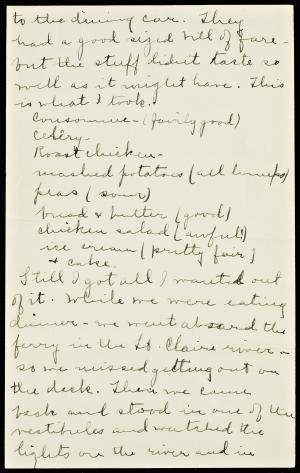 to the dining car. They
had a good sized bill of fare-
but the stuff didn't taste so
well as it might have. This
is what I took.
Consomme - (fairly good)
Celery -
Roast chicken -
mashed potatoes (all lumps)
peas (sour)
bread & butter (good)
chicken salad (awful!)
ice cream (pretty fair)
& cake.
Still I got all I wanted out
of it. While we were eating
dinner - we went aboard the
ferry in the St. Claire river -
so we missed getting out on
the deck. Then we came
back and stood in one of the
vestibules and watched the
lights on the river and in